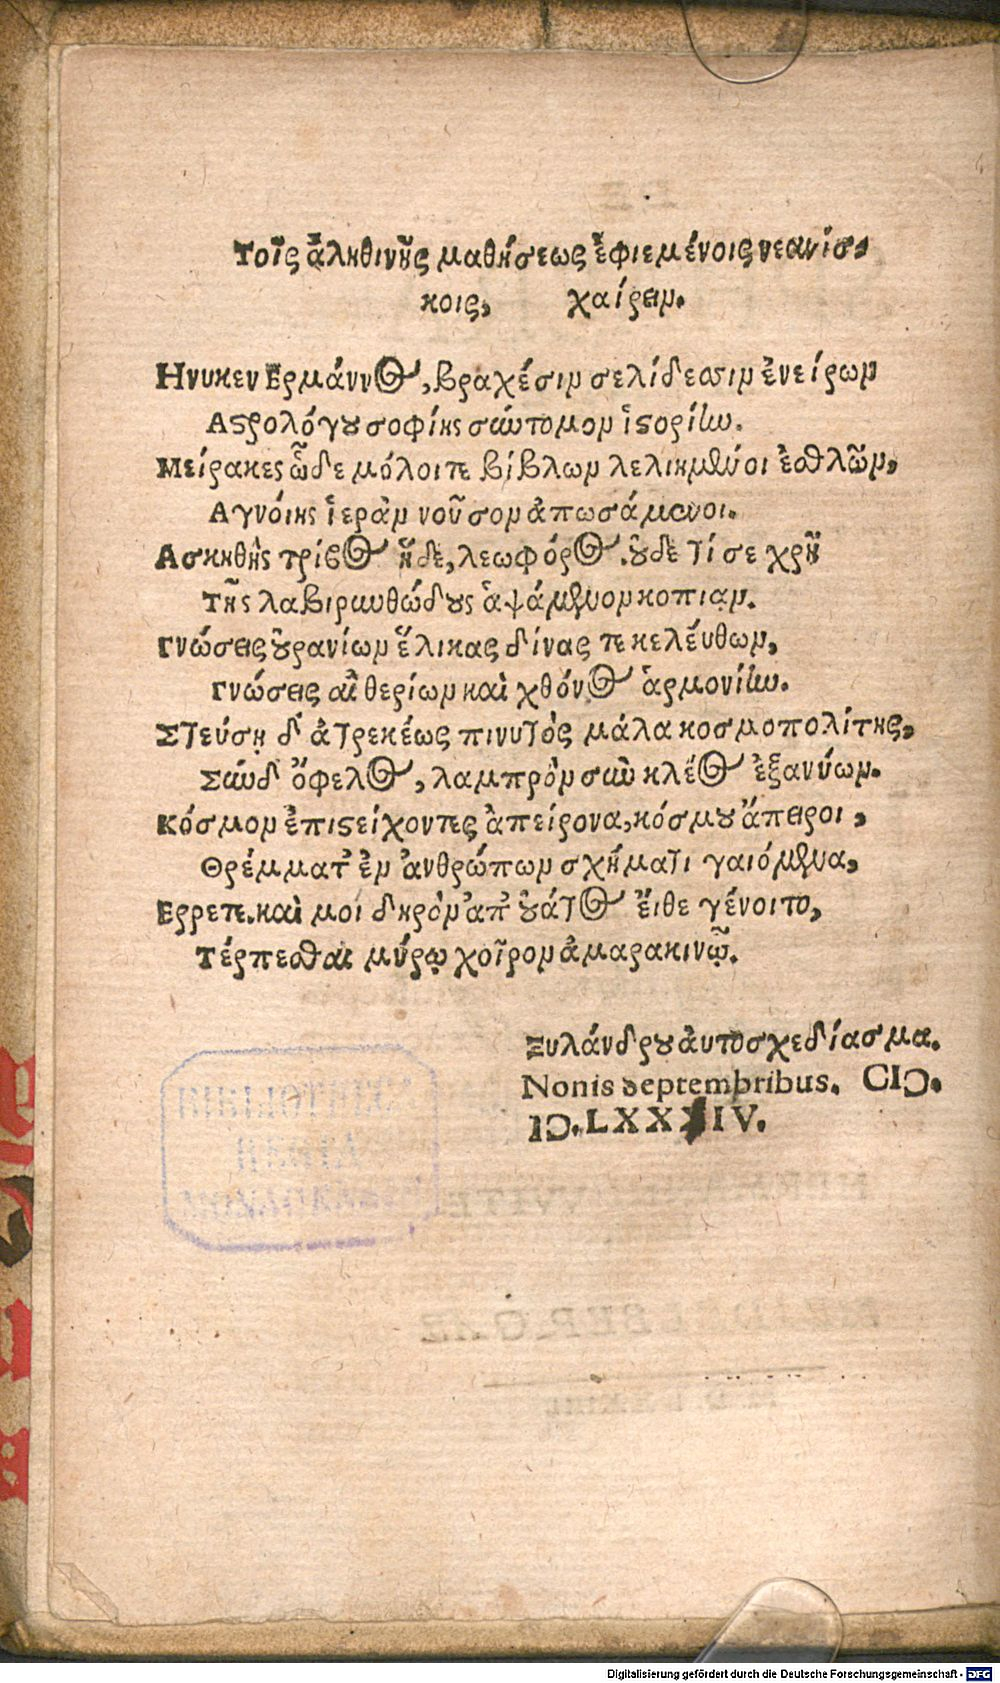 Τοῖς ἀληθινῆς μαθήσεως ἐφιεμένοις νεανίσ-
κοις, χαίρειν.
Ηνυκεν Ερμάννος, βραχέσιν σελίδεσσιν ἐνείρων
Αστρολόγου σοφίης σύντομον ἱστορίην.
Μείρακες ὧδε μόλοιτε βίβλων λελιημένοι ἐσθλῶν,
Αγνοίης ἱερὰν νοῦσον ἀπωσάμενοι.
Ασκηθὴς τρίβος ἥδε, λεωφόρος. οὐδε τί σε χρὴ
Τῆς λαβιρινθώδους ἁψάμενον κοπιᾳν.
Γνώσεις οὐρανίων ἕλικας δίνας τε κελεύθων,
Γνώσεις αἰθερίων καὶ χθόνος ἁρμονίην.
Στεύσῃ δ' ἀτρεκέως πινυτὸς μάλα κοσμοπολίτης,
Σὺν δ' ὄφελος, λαμπρὸν σὺν κλέος ἐξανύων.
Κόσμον ἐπιστείχοντες ἀπείρονα, κόσμου ἄπειροι,
Θρέμματ' ἐν ἀνθρώπων σχήματι γαιόμενα,
Ερρετε. καὶ μοι δηρὸν ἀπ' οὐάτος ἔιθε γένοιτο,
Τέρπεσθαι μύρῳ χοῖρον ἀμαρακινῷ.
Ξυλάνδρου ἀυτοσχεδίασμα.
Nonis septembribus. CIↃ.
IↃ.LXXXIV.
Digitalisierung gefördert durch die Deutsche Forschungsgemeinschaft - DFG